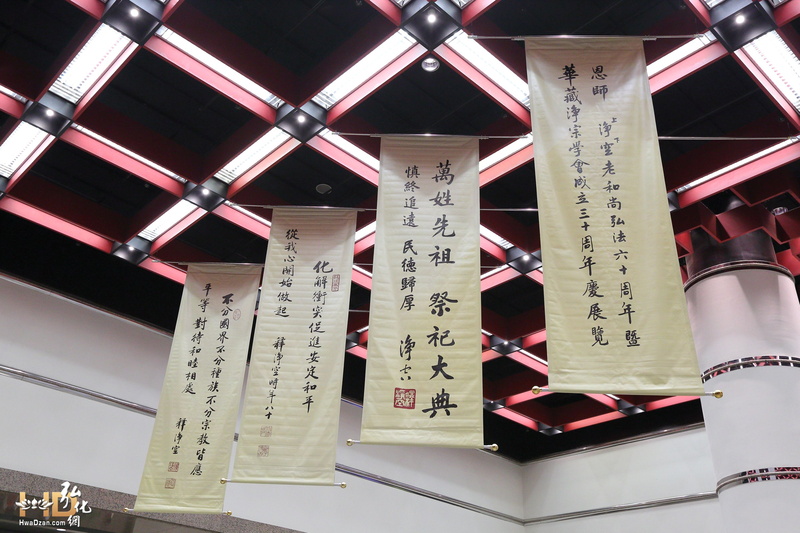 恩師 上淨下空老和尚弘法六十周年暨
華藏淨宗學會成立三十周年慶展覽
萬姓先祖 祭祀大典
慎終追遠 民德歸厚 淨空
化解衝突促進安定和平
從我心開始做起 釋淨空時年八十
不分國界不分種族不分宗教皆應
平等對待和睦相處 釋淨空
弘化網
HwaDzan.com